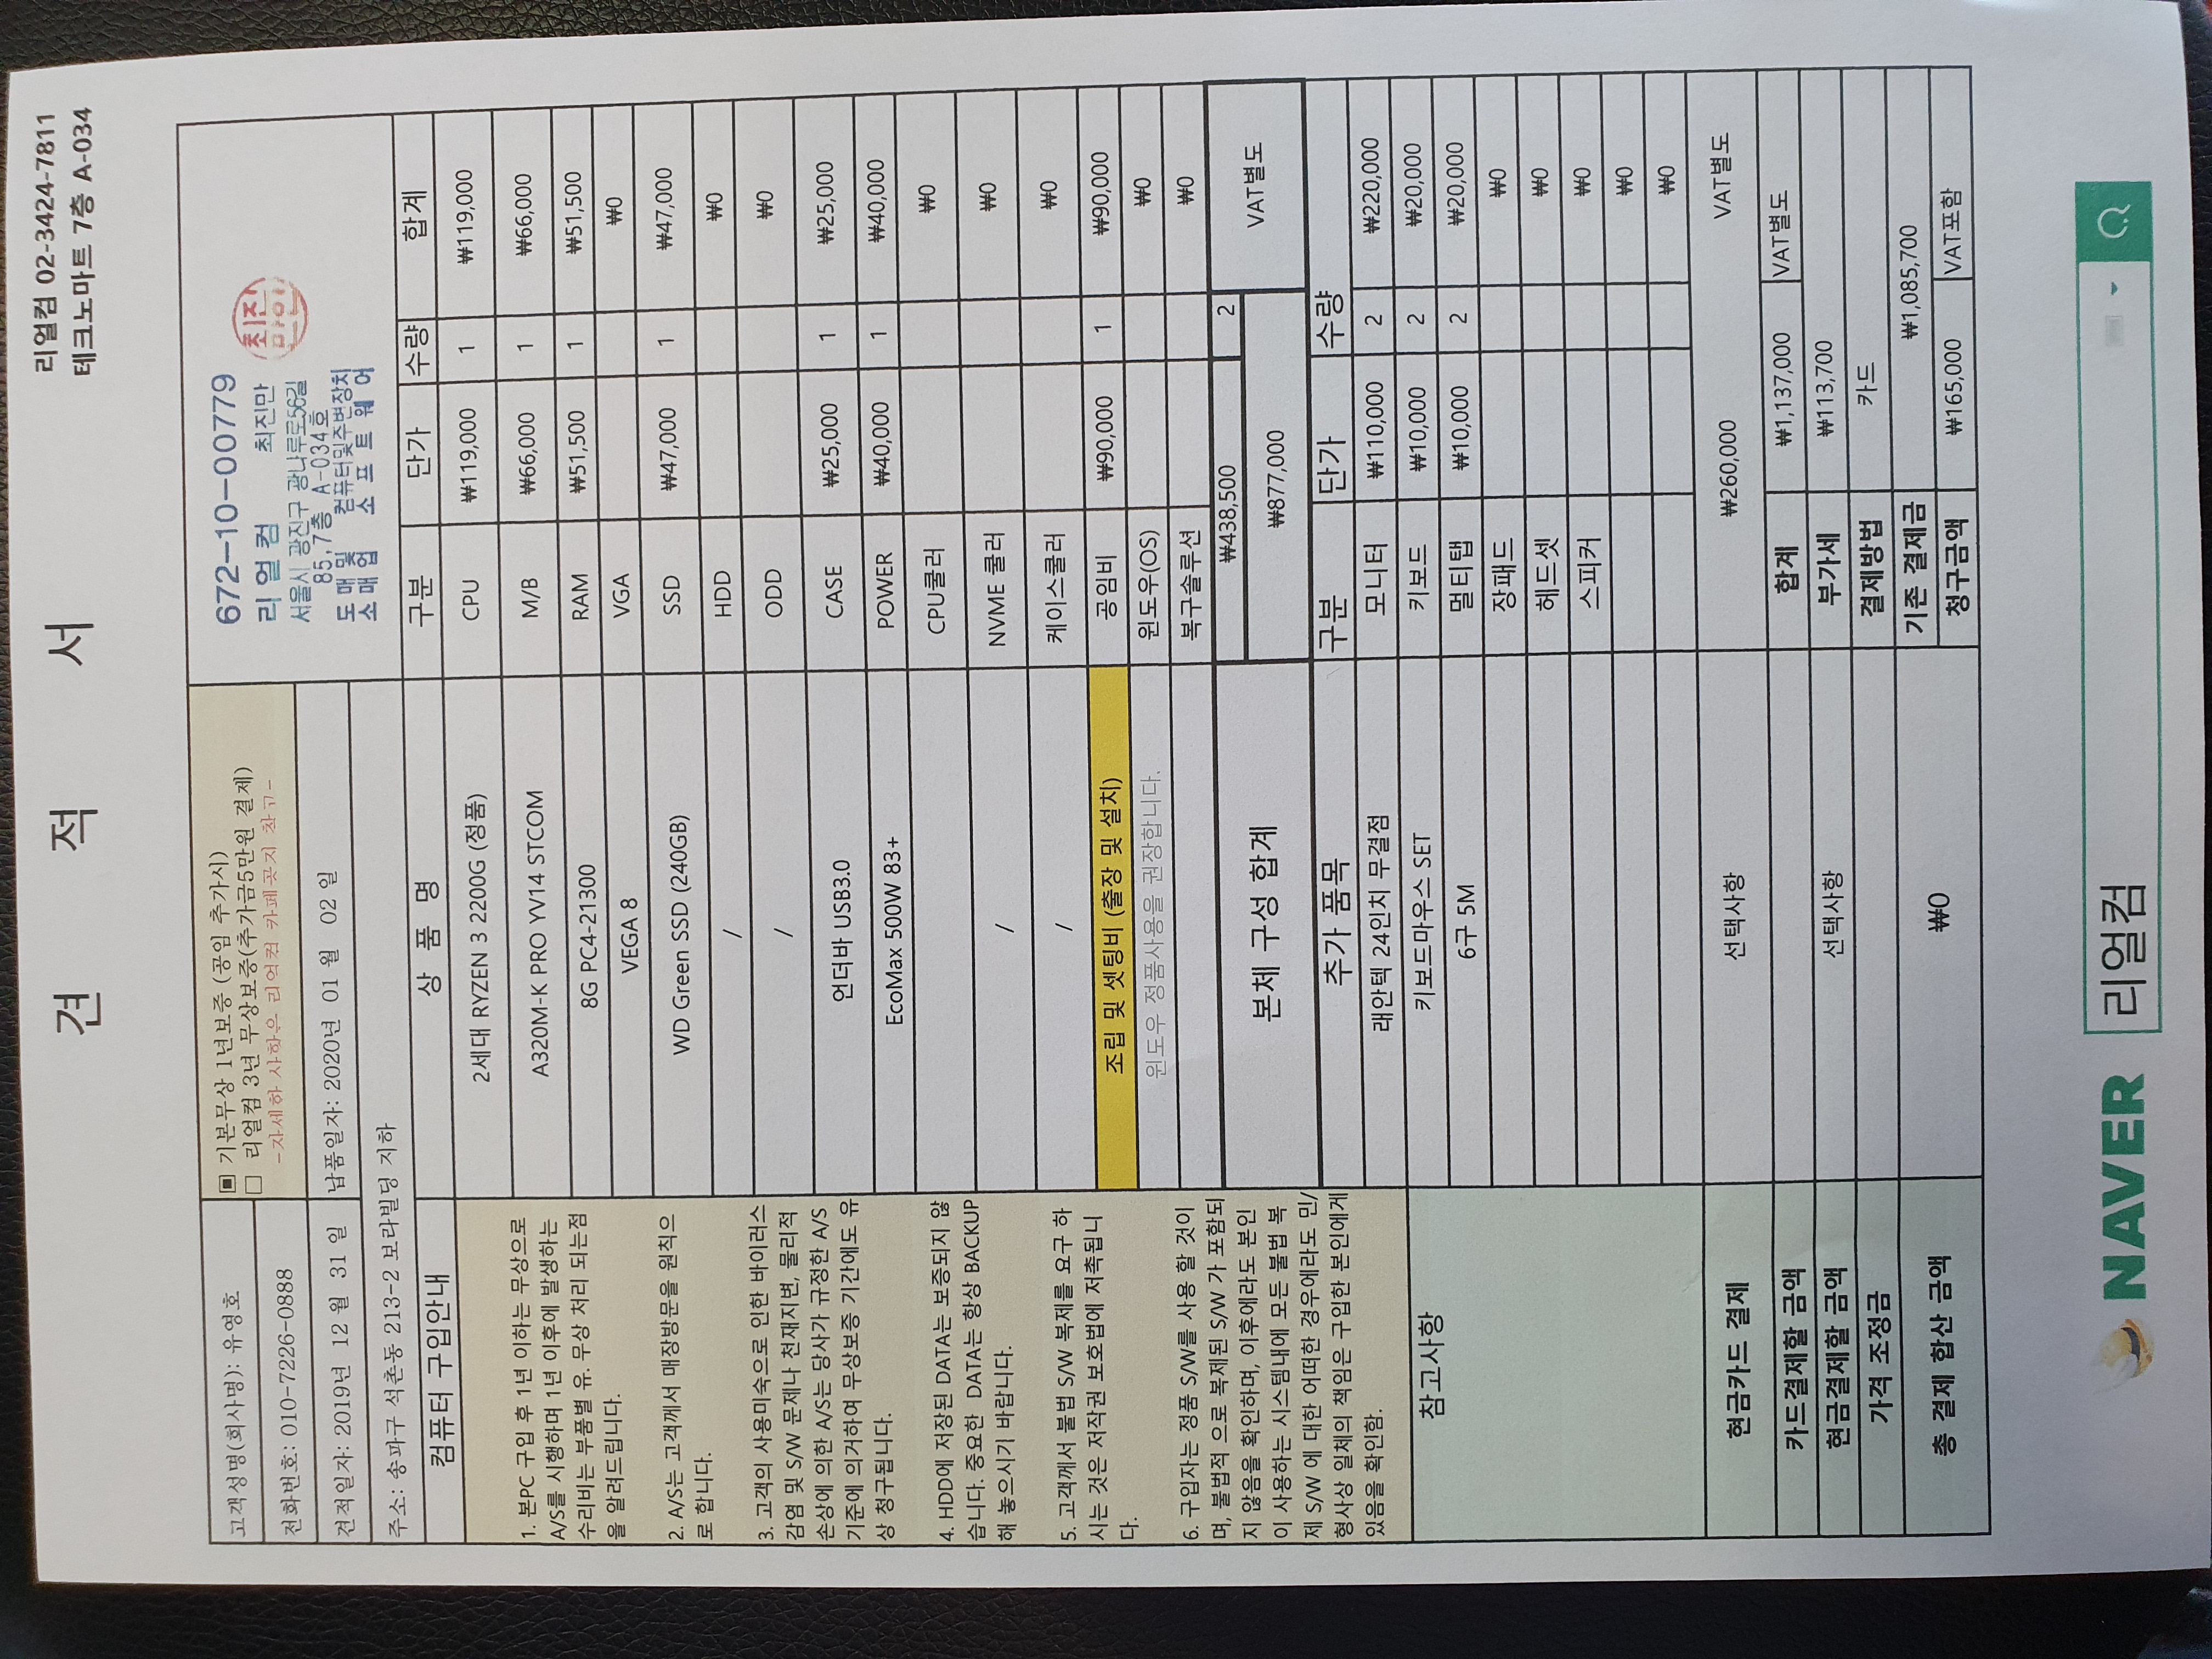 견 적 서
리얼컴 02-3424-7811
테크노마트 7층 A-034
고객성명(회사명): 유영호
전화번호: 010-7226-0888
견적일자: 2019년 12 월 31 일
▣ 기본무상 1년보증 (공임 추가시)
□ 리얼컴 3년 무상보증(추가금5만원 결제)
-자세한 사항은 리얼컴 카페공지 참고-
납품일자: 2020년 01 월 02 일
주소: 송파구 석촌동 213-2 보라빌딩 지하
672-10-00779
리얼컴 최진만
서울시 광진구 광나루로56길
85,7층 A-034호
도매 및 컴퓨터및주변장치
소매업 소프트웨어
컴퓨터 구입안내
1. 본PC 구입 후 1년 이하는 무상으로
A/S를 시행하며 1년 이후에 발생하는
수리비는 부품별 유. 무상 처리 되는점
을 알려드립니다.
2. A/S는 고객께서 매장방문을 원칙으
로 합니다.
3. 고객의 사용미숙으로 인한 바이러스
감염 및 S/W 문제나 천재지변, 물리적
손상에 의한 A/S는 당사가 규정한 A/S
기준에 의거하여 무상보증 기간에도 유
상 청구됩니다.
4. HDD에 저장된 DATA는 보증되지 않
습니다. 중요한 DATA는 항상 BACKUP
해 놓으시기 바랍니다.
5. 고객께서 불법 S/W 복제를 요구 하
시는 것은 저작권 보호법에 저촉됩니
다.
6. 구입자는 정품 S/W를 사용 할 것이
며, 불법적 으로 복제된 S/W 가 포함되
지 않음을 확인하며, 이후에라도 본인
이 사용하는 시스템내에 모든 불법 복
제 S/W 에 대한 어떠한 경우에라도 민/
형사상 일체의 책임은 구입한 본인에게
있음을 확인함.
참고사항
상 품 명 구분 단가 수량 합계
2세대 RYZEN 3 2200G (정품) CPU ₩119,000 1 ₩119,000
A320M-K PRO YV14 STCOM M/B ₩66,000 1 ₩66,000
8G PC4-21300 RAM ₩51,500 1 ₩51,500
VEGA 8 VGA ₩0
WD Green SSD (240GB) SSD ₩47,000 1 ₩47,000
/ HDD ₩0
/ ODD ₩0
언더바 USB3.0 CASE ₩25,000 1 ₩25,000
EcoMax 500W 83+ POWER ₩40,000 1 ₩40,000
CPU쿨러 ₩0
/ NVME 쿨러 ₩0
/ 케이스쿨러 ₩0
조립 및 셋팅비 (출장 및 설치) 공임비 ₩90,000 1 ₩90,000
윈도우 정품사용을 권장합니다. 윈도우(OS) ₩0
복구솔루션 ₩0
본체 구성 합계 ₩438,500 2
₩877,000 VAT별도
추가 품목 구분 단가 수량
래안텍 24인치 무결점 모니터 ₩110,000 2 ₩220,000
키보드마우스 SET 키보드 ₩10,000 2 ₩20,000
6구 5M 멀티탭 ₩10,000 2 ₩20,000
장패드 ₩0
헤드셋 ₩0
스피커 ₩0
₩0
₩0
현금카드 결제 선택사항 ₩260,000 VAT별도
카드결제할 금액 합계 ₩1,137,000 VAT별도
현금결제할 금액 선택사항 부가세 ₩113,700
가격 조정금 결제방법 카드
총 결제 합산 금액 ₩0 기존 결제금 ₩1,085,700
청구금액 ₩165,000 VAT포함
NAVER 리얼컴